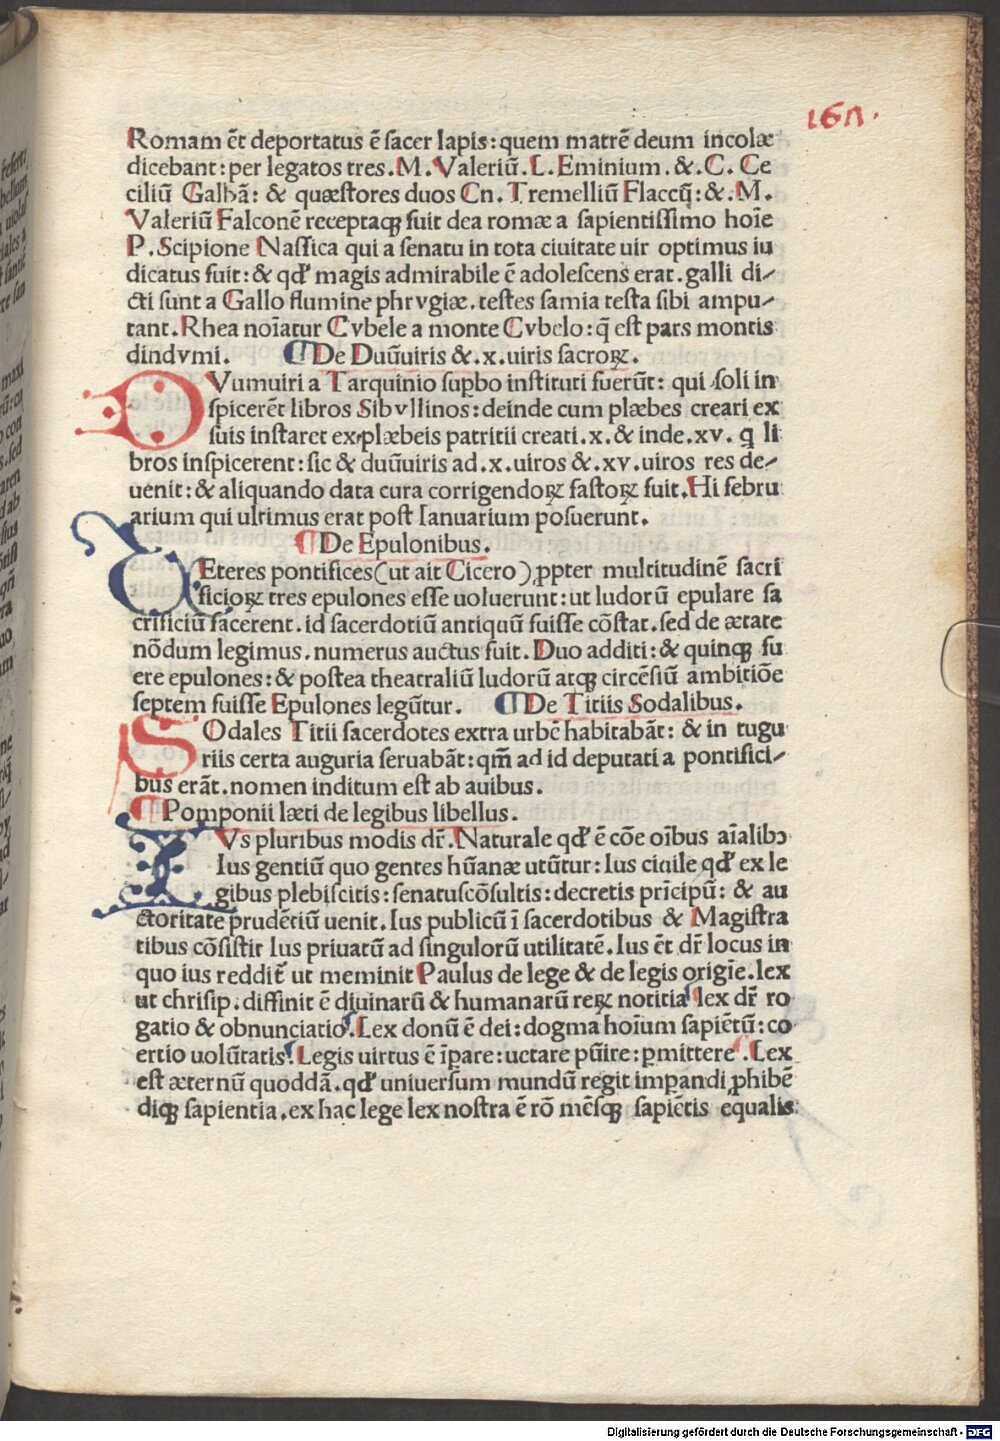 160.
Romam ēt deportatus ē sacer lapis: quem matrē deum incolæ
dicebant: per legatos tres. M. Valeriū. L. Eminium. &. C. Ce
ciliū Galbā: & quæstores duos Cn. Tremelliū Flaccū: &. M.
Valeriū Falconē receptaqꝫ fuit dea romæ a sapientissimo hoīe
P. Scipione Nassica qui a senatu in tota ciuitate uir optimus iu
dicatus fuit: & qd' magis admirabile ē adolescens erat. galli di⸗
cti sunt a Gallo flumine phrygiæ. testes samia testa sibi ampu⸗
tant. Rhea noīatur Cybele a monte Cybelo: q̄ est pars montis
dindymi. ¶ De Duūuiris &. x. uiris sacroꝝ.
DVumuiri a Tarquinio suꝑbo instituti fuerūt: qui soli in
spicerēt libros Sibyllinos: deinde cum plæbes creari ex
suis instaret ex plæbeis patritii creati. x. & inde. xv. q li
bros inspicerent: sic & duūuiris ad. x. uiros &. xv. uiros res de⸗
uenit: & aliquando data cura corrigendoꝝ fastoꝝ fuit. Hi febru
arium qui ultimus erat post Ianuarium posuerunt.
¶ De Epulonibus.
VEteres pontifices (ut ait Cicero) ꝓpter multitudinē sacri
ficioꝝ tres epulones esse uoluerunt: ut ludorū epulare sa
crificiū facerent. id sacerdotiū antiquū fuisse cōstat. sed de ætate
nōdum legimus. numerus auctus fuit. Duo additi: & quinqꝫ fu
ere epulones: & postea theatraliū ludorū atqꝫ circēsiū ambitiōe
septem fuisse Epulones legūtur. ¶ De Titiis Sodalibus.
SOdales Titii sacerdotes extra urbē habitabāt: & in tugu
riis certa auguria seruabāt: qm̄ ad id deputati a pontifici⸗
bus erāt. nomen inditum est ab auibus.
¶ Pomponii læti de legibus libellus.
IVs pluribus modis dr̄. Naturale qd' ē cōe oībus aīalibꝰ
Ius gentiū quo gentes hūanæ utūtur: Ius ciuile qd' ex le
gibus plebiscitis: senatuscōsultis: decretis prīcipū: & au
ctoritate prudētiū uenit. Ius publicū ī sacerdotibus & Magistra
tibus cōsistit Ius priuatū ad singulorū utilitatē. Ius ēt dr̄ locus in
quo ius redditꝰ ut meminit Paulus de lege & de legis origīe. lex
ut chrisip. diffinit ē diuinarū & humanarū reꝝ notitia lex dr̄ ro
gatio & obnunciatio. Lex donū ē dei: dogma hoīum sapiētū: co
ertio uolūtatis. Legis uirtus ē īpare: uetare pūire: ꝑmittere. Lex
est æternū quoddā. qd' uniuersum mundū regit impandi ꝓhibē
diqꝫ sapientia. ex hac lege lex nostra ē rō mēsqꝫ sapiētis equalis
Digitalisierung gefördert durch die Deutsche Forschungsgemeinschaft - DFG